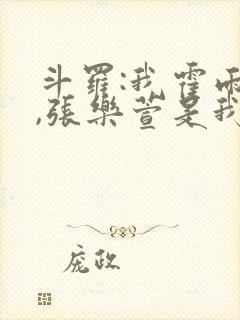 斗羅:我霍雨
,張樂萱是我
庞政